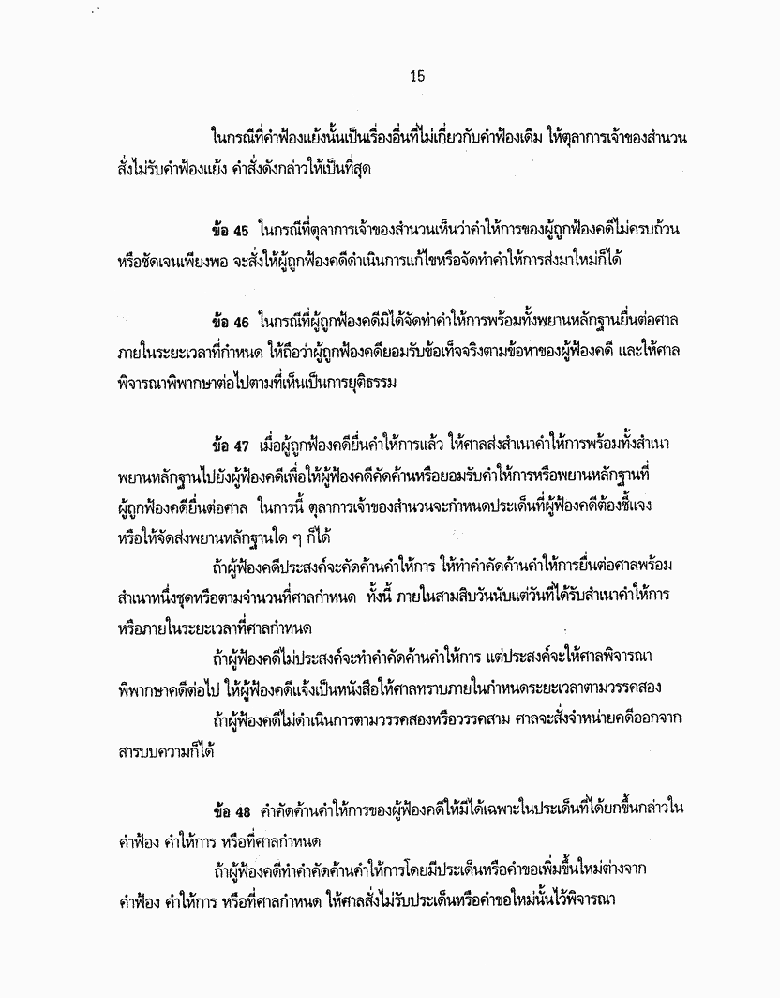 15
ในกรณีที่คำฟ้องแย้งนั้นเป็นเรื่องอื่นที่ไม่เกี่ยวกับคำฟ้องเดิม ให้ตุลาการเจ้าของสำนวน
สั่งไม่รับคำฟ้องแย้ง คำสั่งดังกล่าวให้เป็นที่สุด
ข้อ 45 ในกรณีที่ตุลาการเจ้าของสำนวนเห็นว่าคำให้การของผู้ถูกฟ้องคดีไม่ครบถ้วน
หรือชัดเจนเพียงพอ จะสั่งให้ผู้ถูกฟ้องคดีดำเนินการแก้ไขหรือจัดทำคำให้การส่งมาใหม่ก็ได้
ข้อ 46 ในกรณีที่ผู้ถูกฟ้องคดีมิได้จัดทำคำให้การพร้อมทั้งพยานหลักฐานยื่นต่อศาล
ภายในระยะเวลาที่กำหนด ให้ถือว่าผู้ถูกฟ้องคดียอมรับข้อเท็จจริงตามข้อหาของผู้ฟ้องคดี และให้ศาล
พิจารณาพิพากษาต่อไปตามที่เห็นเป็นการยุติธรรม
ข้อ 47 เมื่อผู้ถูกฟ้องคดียื่นคำให้การแล้ว ให้ศาลส่งสำเนาคำให้การพร้อมทั้งสำเนา
พยานหลักฐานไปยังผู้ฟ้องคดีเพื่อให้ผู้ฟ้องคดีคัดค้านหรือยอมรับคำให้การหรือพยานหลักฐานที่
ผู้ถูกฟ้องคดียื่นต่อศาล ในการนี้ ตุลาการเจ้าของสำนวนจะกำหนดประเด็นที่ผู้ฟ้องคดีต้องชี้แจง
หรือให้จัดส่งพยานหลักฐานใด ๆ ก็ได้
ถ้าผู้ฟ้องคดีประสงค์จะคัดค้านคำให้การ ให้ทำคำคัดค้านคำให้การยื่นต่อศาลพร้อม
สำเนาหนึ่งชุดหรือตามจำนวนที่ศาลกำหนด ทั้งนี้ ภายในสามสิบวันนับแต่วันที่ได้รับสำเนาคำให้การ
หรือภายในระยะเวลาที่ศาลกำหนด
ถ้าผู้ฟ้องคดีไม่ประสงค์จะทำคำคัดค้านคำให้การ แต่ประสงค์จะให้ศาลพิจารณา
พิพากษาคดีต่อไป ให้ผู้ฟ้องคดีแจ้งเป็นหนังสือให้ศาลทราบภายในกำหนดระยะเวลาตามวรรคสอง
ถ้าผู้ฟ้องคดีไม่ดำเนินการตามวรรคสองหรือวรรคสาม ศาลจะสั่งจำหน่ายคดีออกจาก
สารบบความก็ได้
ข้อ 48 คำคัดค้านคำให้การของผู้ฟ้องคดีให้มีได้เฉพาะในประเด็นที่ได้ยกขึ้นกล่าวใน
คำฟ้อง คำให้การ หรือที่ศาลกำหนด
ถ้าผู้ฟ้องคดีทำคำคัดค้านคำให้การโดยมีประเด็นหรือคำขอเพิ่มขึ้นใหม่ต่างจาก
คำฟ้อง คำให้การ หรือที่ศาลกำหนด ให้ศาลสั่งไม่รับประเด็นหรือคำขอใหม่นั้นไว้พิจารณา